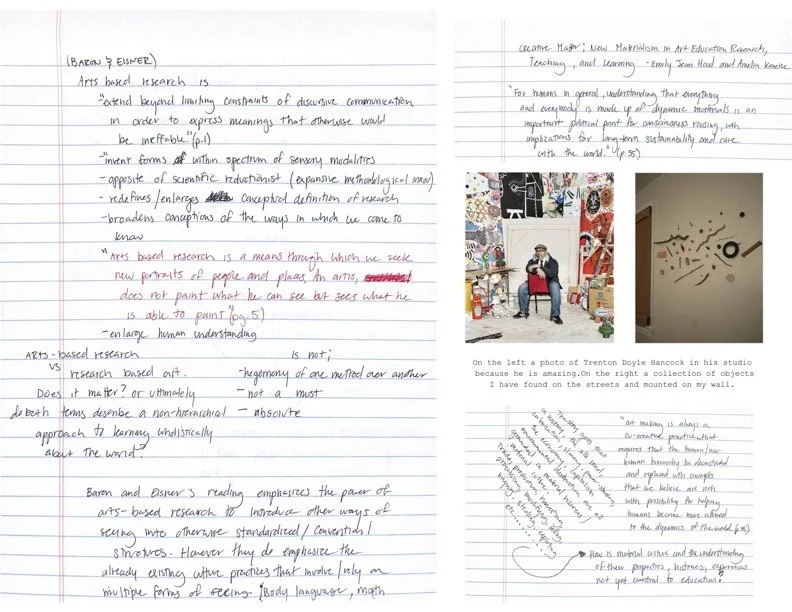 (BARON & EISNER)
Arts based research is
-"extend beyond limiting constraints of discursive communication
in order to express meanings that otherwise would
be ineffable." (p.1)
-"invent forms within spectrum of sensory modalities
- opposite of scientific reductionist (expansive methodological
- redefines/enlarges conceptual definition of research
- broadens conceptions of the ways in which we come to
know
"Arts based research is a means through which we seek
new portraits of people and places. An artis,
does not paint what he can see but sees what he
is able to paint" (pg. 5)
- enlarge human understanding
ARTS-based research
vs
research based art.
Does it matter? or ultimately
do both terms describe a non-hierarchial
approach to learning wholistically
about the world?
Is not;
- hegemony of one method over another
- not a must
- absolute
Baron and Eisner's reading emphasizes the power of
arts-based research to introduce other ways of
seeing into otherwise standardized/Convention/
structures. However they do emphasize the
already existing culture practices that involve/rely on
multiple forms of seeing. Body language, math
Creative Matter; New Materialism in Art Education Research,
Teaching, and Learning - Emily Jean Hood and Amelia Kraehe
"For humans in general, understanding that everything
and everybody is made up of dynamic materials is an
important political point for consciousness raising, with
implications for long-term sustainability and care
with the world." (p.35)
On the left a photo of Trenton Doyle Hancock in his studio
because he is amazing.On the right a collection of objects
I have found on the streets and mounted on my wall.
in history, the silk road,
colonization, slave trade,
the economy, pollution,
environmental destruction are all
grounded in material histories/
Trade, production, harvesting,
buying, stealing, copying
etc.......
"art making is always a
co-creative practice that
requires that the human/non
human hierarchy be deconstructed
and replaced with concepts
that we believe are rich
with possibility for helping
humans become more attuned
to the dynamics of the world (p.35)
How is material culture and the understanding
of their properties, histories, expressions
not yet central to education?